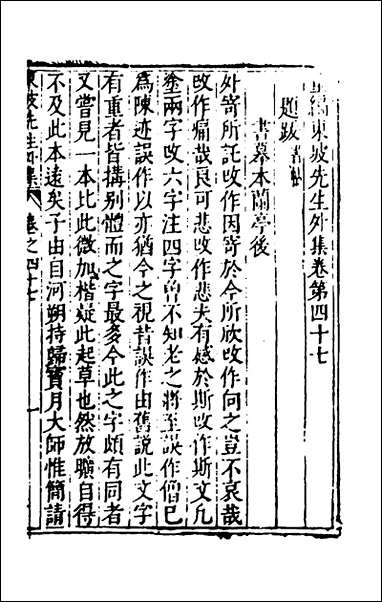 重編東坡先生外集卷第四十七
題跋 書帖
書摹本蘭亭後
外寄所託改作因寄於今所欣改作向之豈不哀哉
改作痛哉良可悲改作悲夫有感於斯改作斯文凡
塗兩字改六字注四字曾不知老之將至誤作僧已
為陳迹誤作以亦猶今之視昔誤作由舊說此文字
有重者皆搆別體而之字最多今此之字頗有同者
又嘗見一本比此微加楷疑此起草也然放曠自得
不及此本遠矣子由自河朔持歸寶月大師惟簡請
東坡先生外集 卷之四十七 一